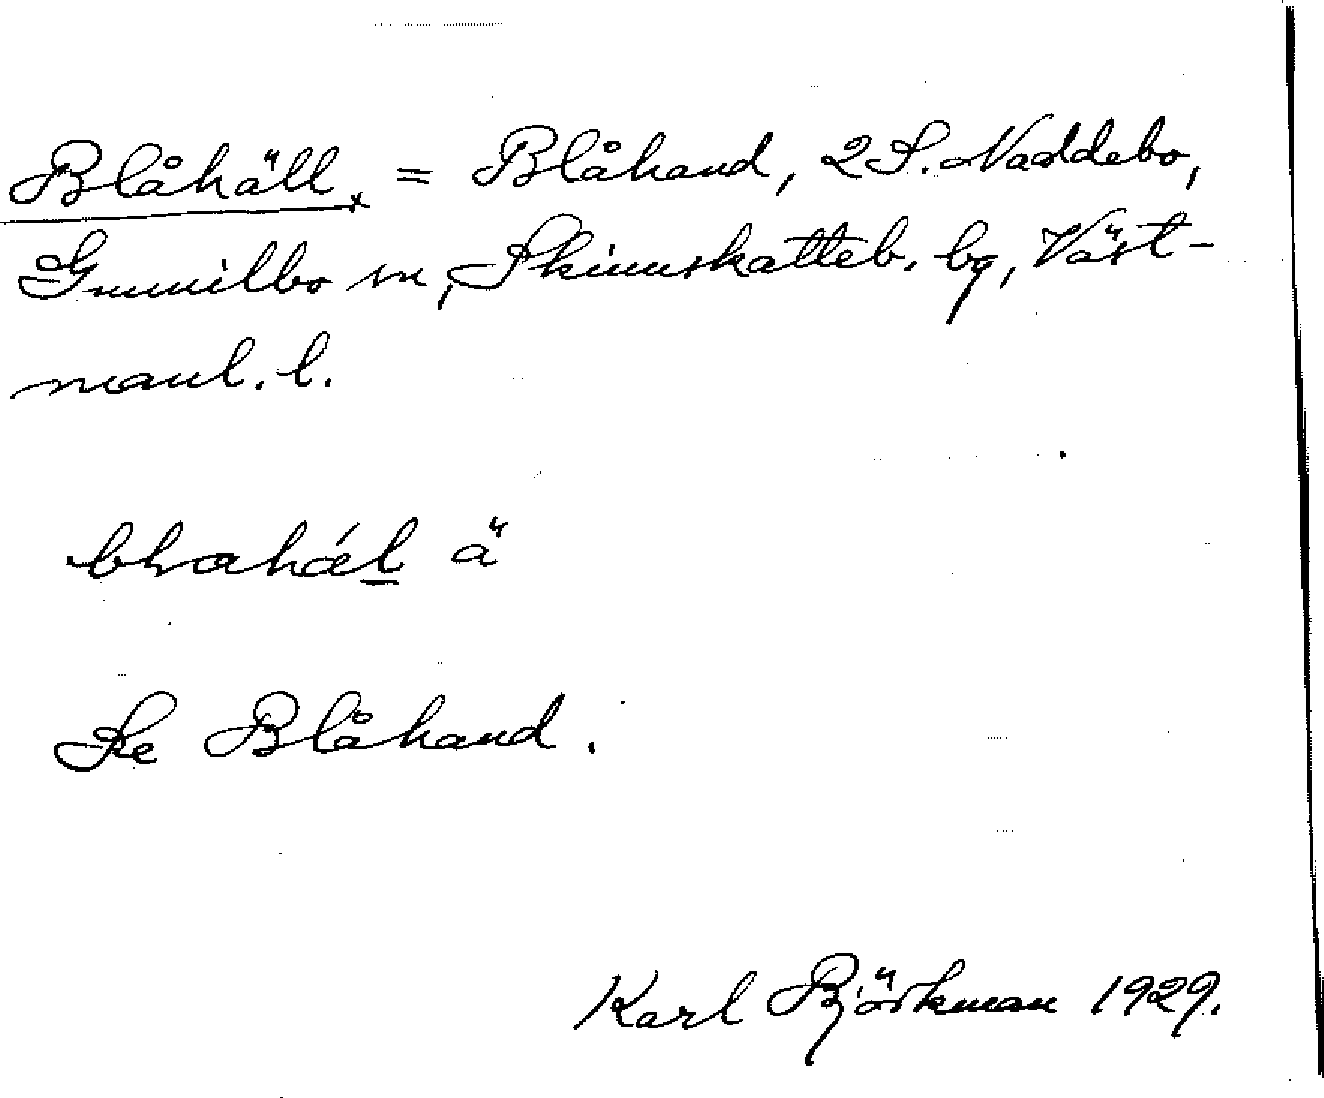 Blåhäll = Blåhand, 2 S. Naddebo,
Gunnilbo sn, Skinnskatteb. bg, Väst-
manl. l.
ä
Se Blåhand.
Karl Björkman 1929.